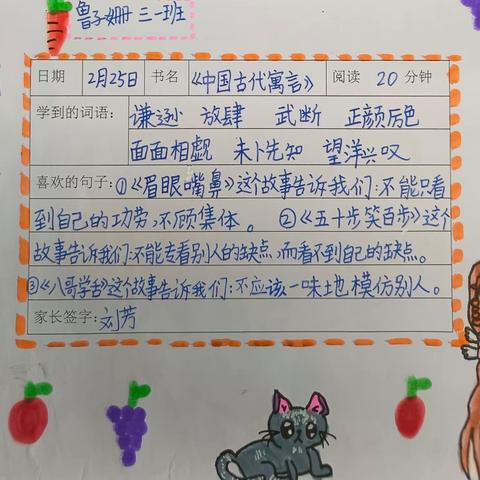 鲁子姗 三一班
日期 2月25日 书名 《中国古代寓言》 阅读 20 分钟
学到的词语: 谦逊 放肆 武断 正颜厉色
面面相觑 未卜先知 望洋兴叹
喜欢的句子:①《眉眼嘴鼻》这个故事告诉我们:不能只看
到自己的功劳,不顾集体。 ②《五十步笑百步》这个
故事告诉我们:不能专看别人的缺点,而看不到自己的缺点。
③《八哥学舌》这个故事告诉我们:不应该一味地模仿别人。
家长签字:刘芳